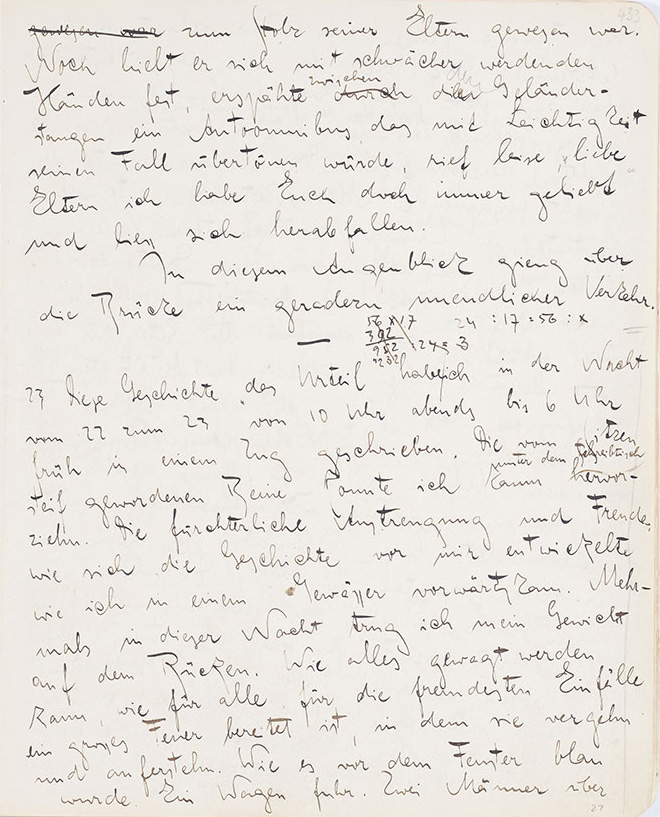 433
gewesen war zum Stolz seiner Eltern gewesen war.
Noch hielt er sich mit schwächer werdenden
Händen fest, erspähte durch zwischen den Geländer-
stangen ein Autoomnibus, das mit Leichtigkeit
seinen Fall übertönen würde, rief leise „liebe
Eltern ich habe Euch doch immer geliebt"
und liess sich herabfallen.
In diesem Augenblick gieng über
die Brücke ein geradezu unendlicher Verkehr.
56 × 17 24 : 17 = 56 : x
392
952 : 24 = 3
232
23 Diese Geschichte „das Urteil" habe ich in der Nacht
vom 22 zum 23 von 10 Uhr abends bis 6 Uhr
früh in einem Zug geschrieben. Die vom Sitzen
steif gewordenen Beine konnte ich kaum unter dem Schreibtisch hervor-
ziehn. Die fürchterliche Anstrengung und Freude,
wie sich die Geschichte vor mir entwickelte
wie ich in einem Gewässer vorwärtskam. Mehr-
mals in dieser Nacht trug ich mein Gewicht
auf dem Rücken. Wie alles gewagt werden
kann, wie für alle, für die fremdesten Einfälle
ein grosses Feuer bereitet ist, in dem sie vergehn
und auferstehn. Wie es vor dem Fenster blau
wurde. Ein Wagen fuhr. Zwei Männer über
27